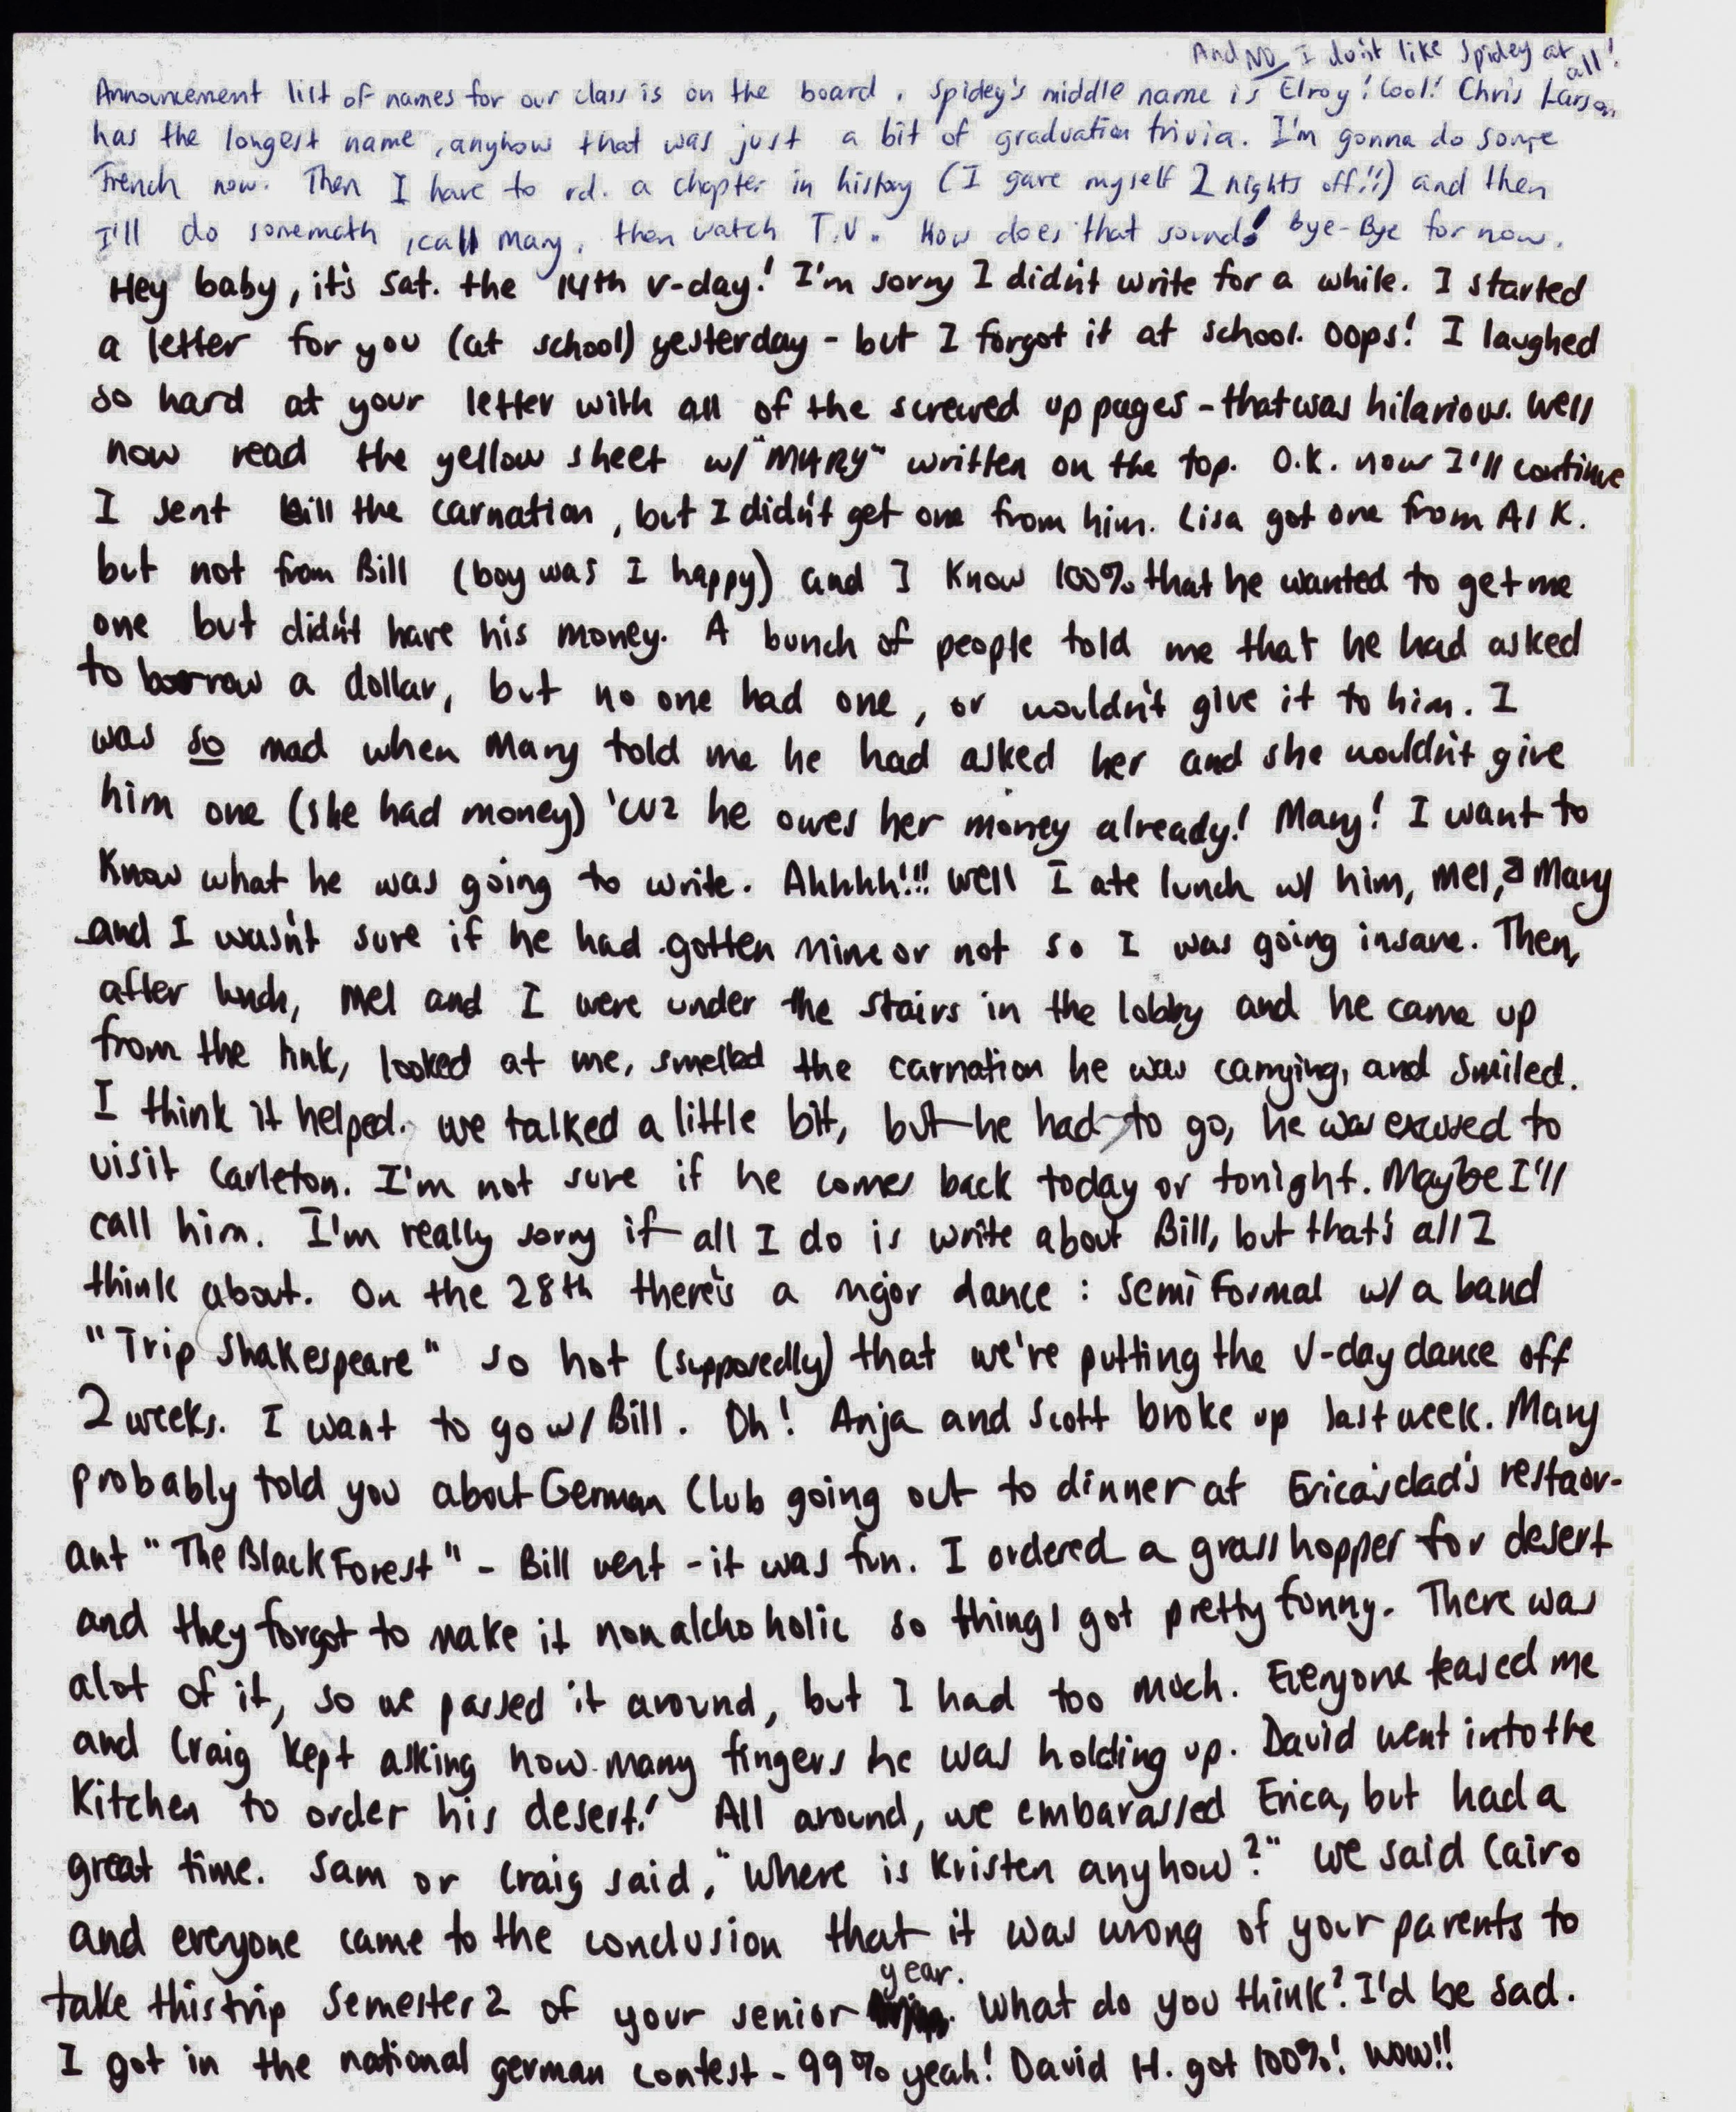 And NO I don't like Spidey at all!
Announcement list of names for our class is on the board. Spidey's middle name is Elroy! Cool! Chris Larson
has the longest name, anyhow that was just a bit of graduation trivia. I'm gonna do some
French now. Then I have to rd. a chapter in history (I gave myself 2 nights off!!) and then
I'll do some math, call Mary, then watch T.V. How does that sound! bye-Bye for now.
Hey baby, it's Sat. the 14th v-day! I'm sorry I didn't write for a while. I started
a letter for you (at school) yesterday - but I forgot it at school. Oops! I laughed
so hard at your letter with all of the screwed up pages - that was hilarious. Well
now read the yellow sheet w/ "MARY" written on the top. O.K. now I'll continue
I sent Bill the carnation, but I didn't get one from him. Lisa got one from Al K.
but not from Bill (boy was I happy) and I know 100% that he wanted to get me
one but didn't have his money. A bunch of people told me that he had asked
to borrow a dollar, but no one had one, or wouldn't give it to him. I
was so mad when Mary told me he had asked her and she wouldn't give
him one (she had money) 'cuz he owes her money already! Mary! I want to
know what he was going to write. Ahhhh!!! Well I ate lunch w/ him, Mel, & Mary
and I wasn't sure if he had gotten mine or not so I was going insane. Then,
after lunch, Mel and I were under the stairs in the lobby and he came up
from the link, looked at me, smelled the carnation he was carrying, and smiled.
I think it helped. we talked a little bit, but he had to go, he was excused to
visit Carleton. I'm not sure if he comes back today or tonight. Maybe I'll
call him. I'm really sorry if all I do is write about Bill, but that's all I
think about. On the 28th there's a major dance : semi Formal w/ a band
"Trip Shakespeare" so hot (supposedly) that we're putting the V-day dance off
2 weeks. I want to go w/ Bill. Oh! Anja and Scott broke up last week. Mary
probably told you about German Club going out to dinner at Erica's dad's restaur-
ant "The Black Forest" - Bill went - it was fun. I ordered a grasshopper for desert
and they forgot to make it nonalchoholic so things got pretty funny. There was
alot of it, so we passed it around, but I had too much. Everyone teased me
and Craig kept asking how many fingers he was holding up. David went into the
Kitchen to order his desert! All around, we embarassed Erica, but had a
great time. Sam or Craig said, "Where is Kristen anyhow?" we said Cairo
and everyone came to the conclusion that it was wrong of your parents to
take this trip Semester 2 of your senior year. What do you think? I'd be sad.
I got in the national german contest - 99% yeah! David H. got 100%! wow!!